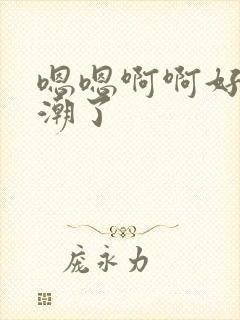 嗯嗯啊啊好
潮了
庞永力